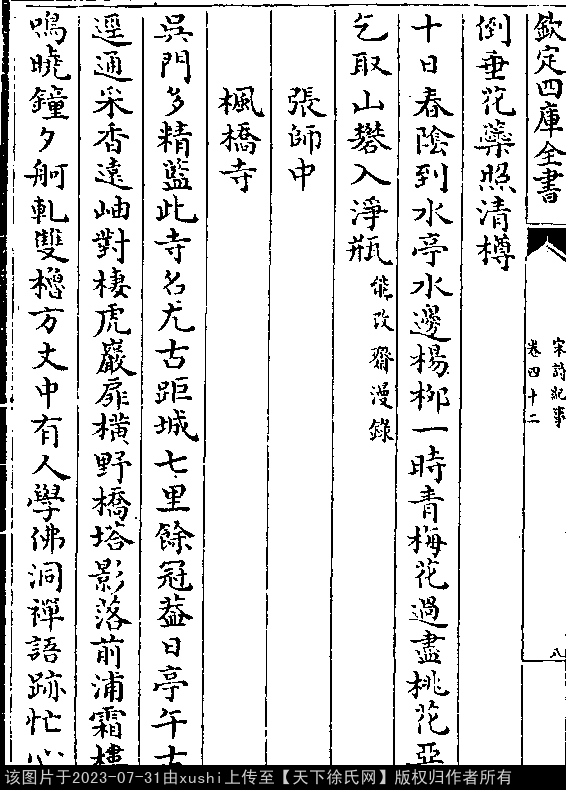 欽定四庫全書
宋詩紀事
卷四十二
八
倒垂花藥照清樽
十日春陰到水亭水邊楊柳一時青梅花過盡桃花亞
乞取山礬入淨瓶能改齋漫錄
張師中
楓橋寺
吳門多精藍此寺名尤古距城七里餘冠葢日亭午古
逕通采香遠岫對棲虎巖扉橫野橋塔影落前浦霜樓
鳴曉鐘夕舸軋雙櫓方丈中有人學佛洞禪語跡忙心
该图片于2023-07-31由xushi上传至【天下徐氏网】版权归作者所有